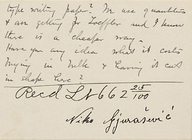 type writing paper? We use quantities
& are getting for Loeffler and I know
there is a cheaper way.
Have you any idea what it costs
buying in bulk & having it cut
in shape here?
Recd Lt 662 25/100
Niko Gjurašević